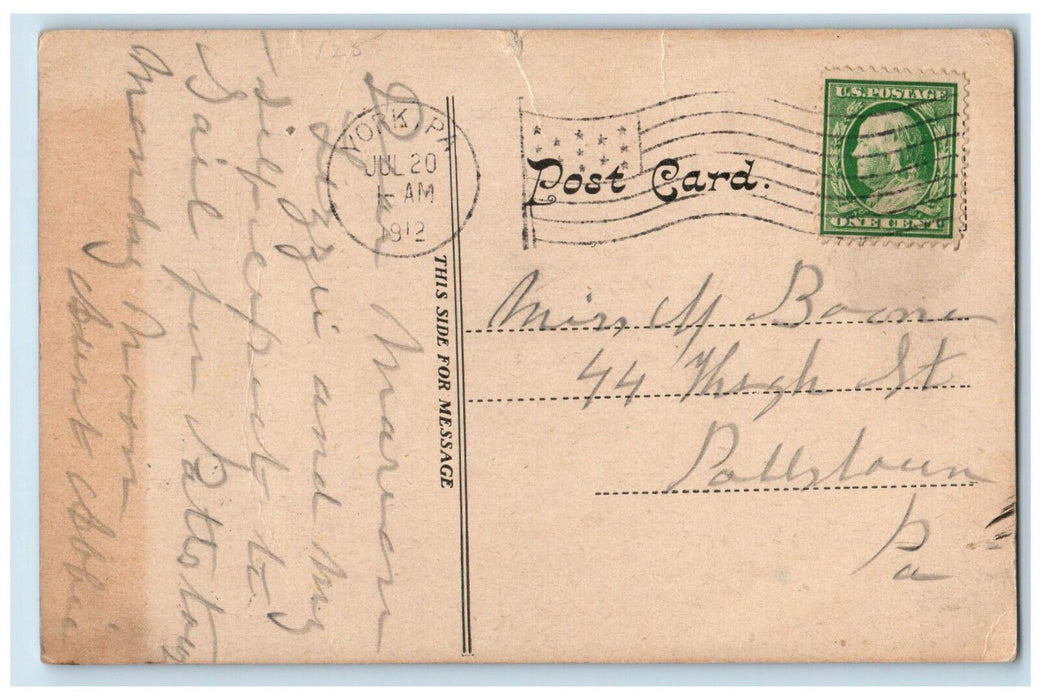 YORK PA
JUL 20
1- AM
1912
U.S. POSTAGE
ONE CENT
Post Card.
THIS SIDE FOR MESSAGE
Miss M Boone
44 High St
Pottstown
Pa
128
Dear
Lizzie and My
self expect to
Sail for Potts town
Monday Noon
Aunt Abbie